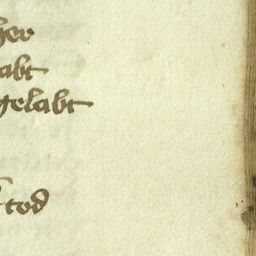 her
abt
gelabt
tod